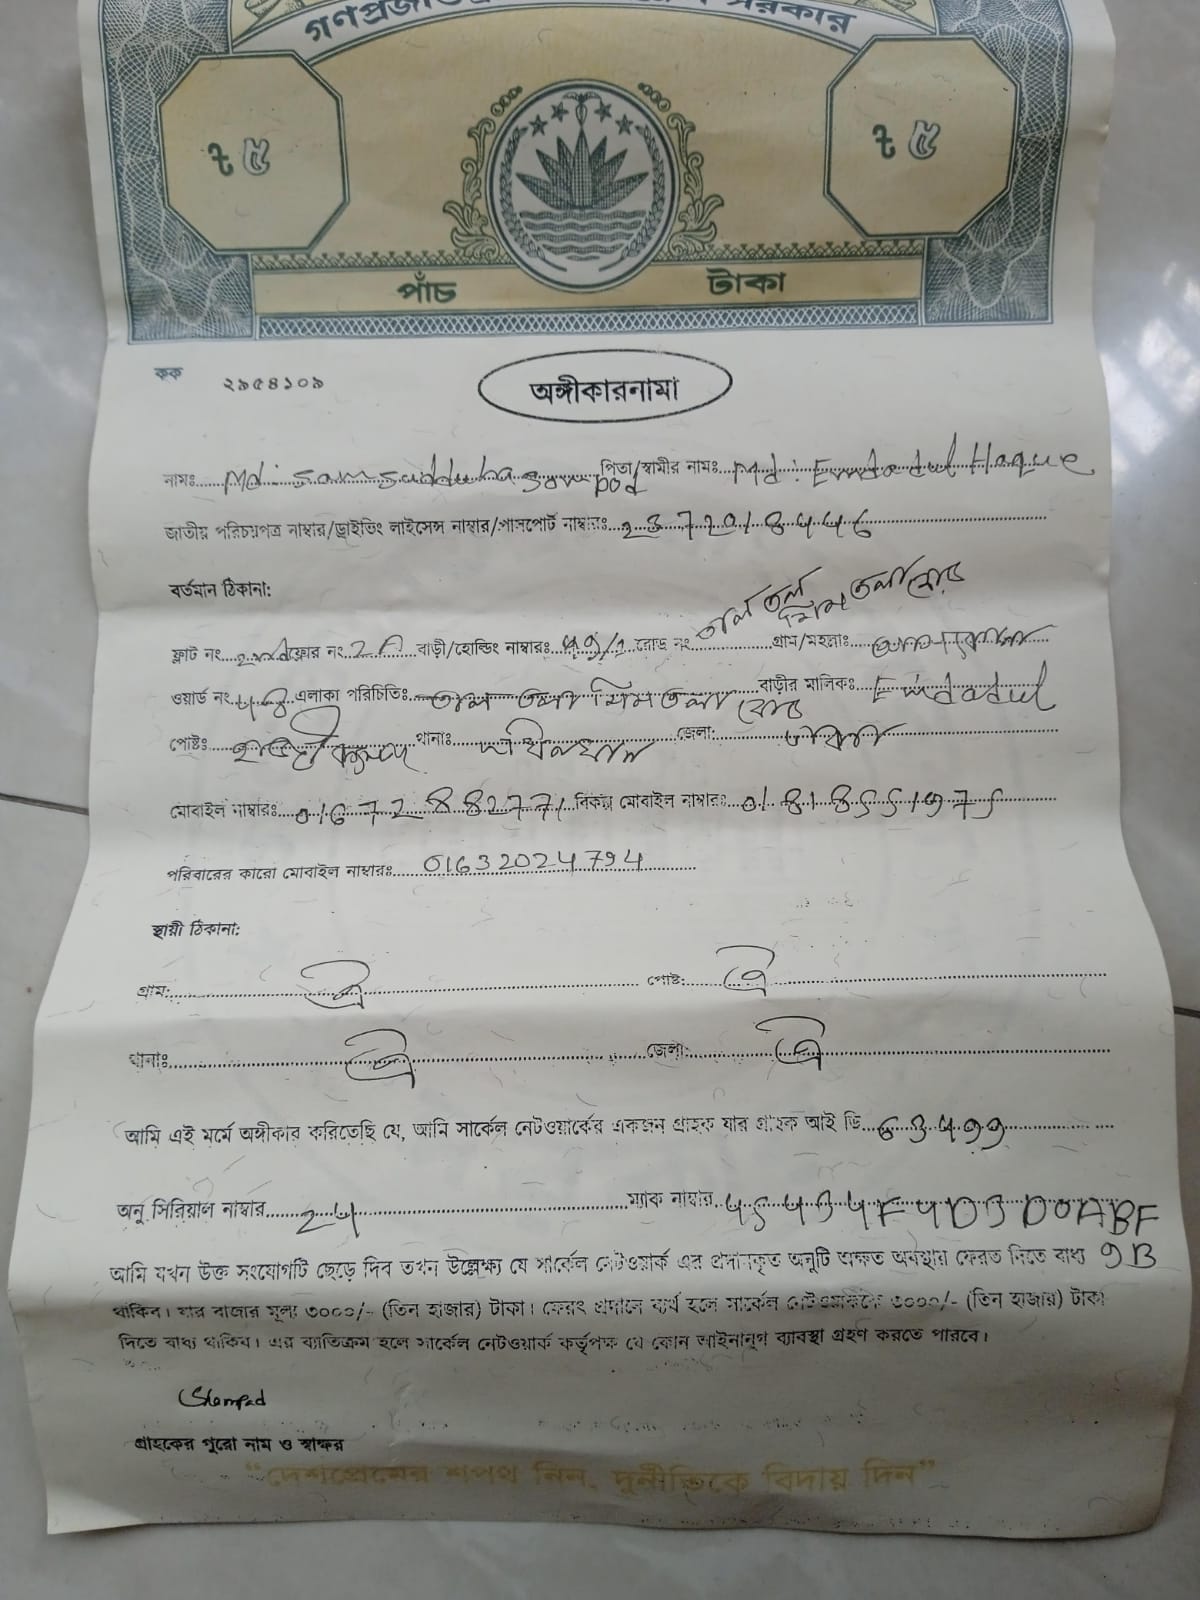 গণপ্রজাতন্ত্রী সরকার
৳ ৫ ৳ ৫
পাঁচ টাকা
কক ২৯৫৪১০৯
অঙ্গীকারনামা
নামঃ Md: Samsudduha পিতা/স্বামীর নামঃ Md: Emdadul Haque
জাতীয় পরিচয়পত্র নাম্বার/ড্রাইভিং লাইসেন্স নাম্বার/পাসপোর্ট নাম্বারঃ
বর্তমান ঠিকানা:
ফ্লাট নং ফ্লোর নং বাড়ী/হোল্ডিং নাম্বারঃ রোড নং গ্রাম/মহল্লাঃ
ওয়ার্ড নং এলাকা পরিচিতিঃ তাল তলা শিমতলা রোড বাড়ীর মালিকঃ Emdadul
পোষ্টঃ থানাঃ জেলা: ঢাকা
মোবাইল নাম্বারঃ 01672882771 বিকল্প মোবাইল নাম্বারঃ
পরিবারের কারো মোবাইল নাম্বারঃ 01632024794
স্থায়ী ঠিকানা:
গ্রাম: ঐ পোষ্ট: ঐ
থানাঃ ঐ জেলা: ঐ
আমি এই মর্মে অঙ্গীকার করিতেছি যে, আমি সার্কেল নেটওয়ার্কের একজন গ্রাহক যার গ্রাহক আই ডি
অনু সিরিয়াল নাম্বার 24 ম্যাক নাম্বার
আমি যখন উক্ত সংযোগটি ছেড়ে দিব তখন উল্লেখ্য যে সার্কেল নেটওয়ার্ক এর প্রদানকৃত অনুটি অক্ষত অবস্থায় ফেরত দিতে বাধ্য
থাকিব। যার বাজার মূল্য ৩০০০/- (তিন হাজার) টাকা। ফেরৎ প্রদানে ব্যর্থ হলে সার্কেল নেটওয়ার্ককে ৩০০০/- (তিন হাজার) টাকা
দিতে বাধ্য থাকিব। এর ব্যতিক্রম হলে সার্কেল নেটওয়ার্ক কর্তৃপক্ষ যে কোন আইনানুগ ব্যবস্থা গ্রহণ করতে পারবে।
গ্রাহকের পুরো নাম ও স্বাক্ষর
“দেশপ্রেমের শপথ নিন, দুর্নীতিকে বিদায় দিন”